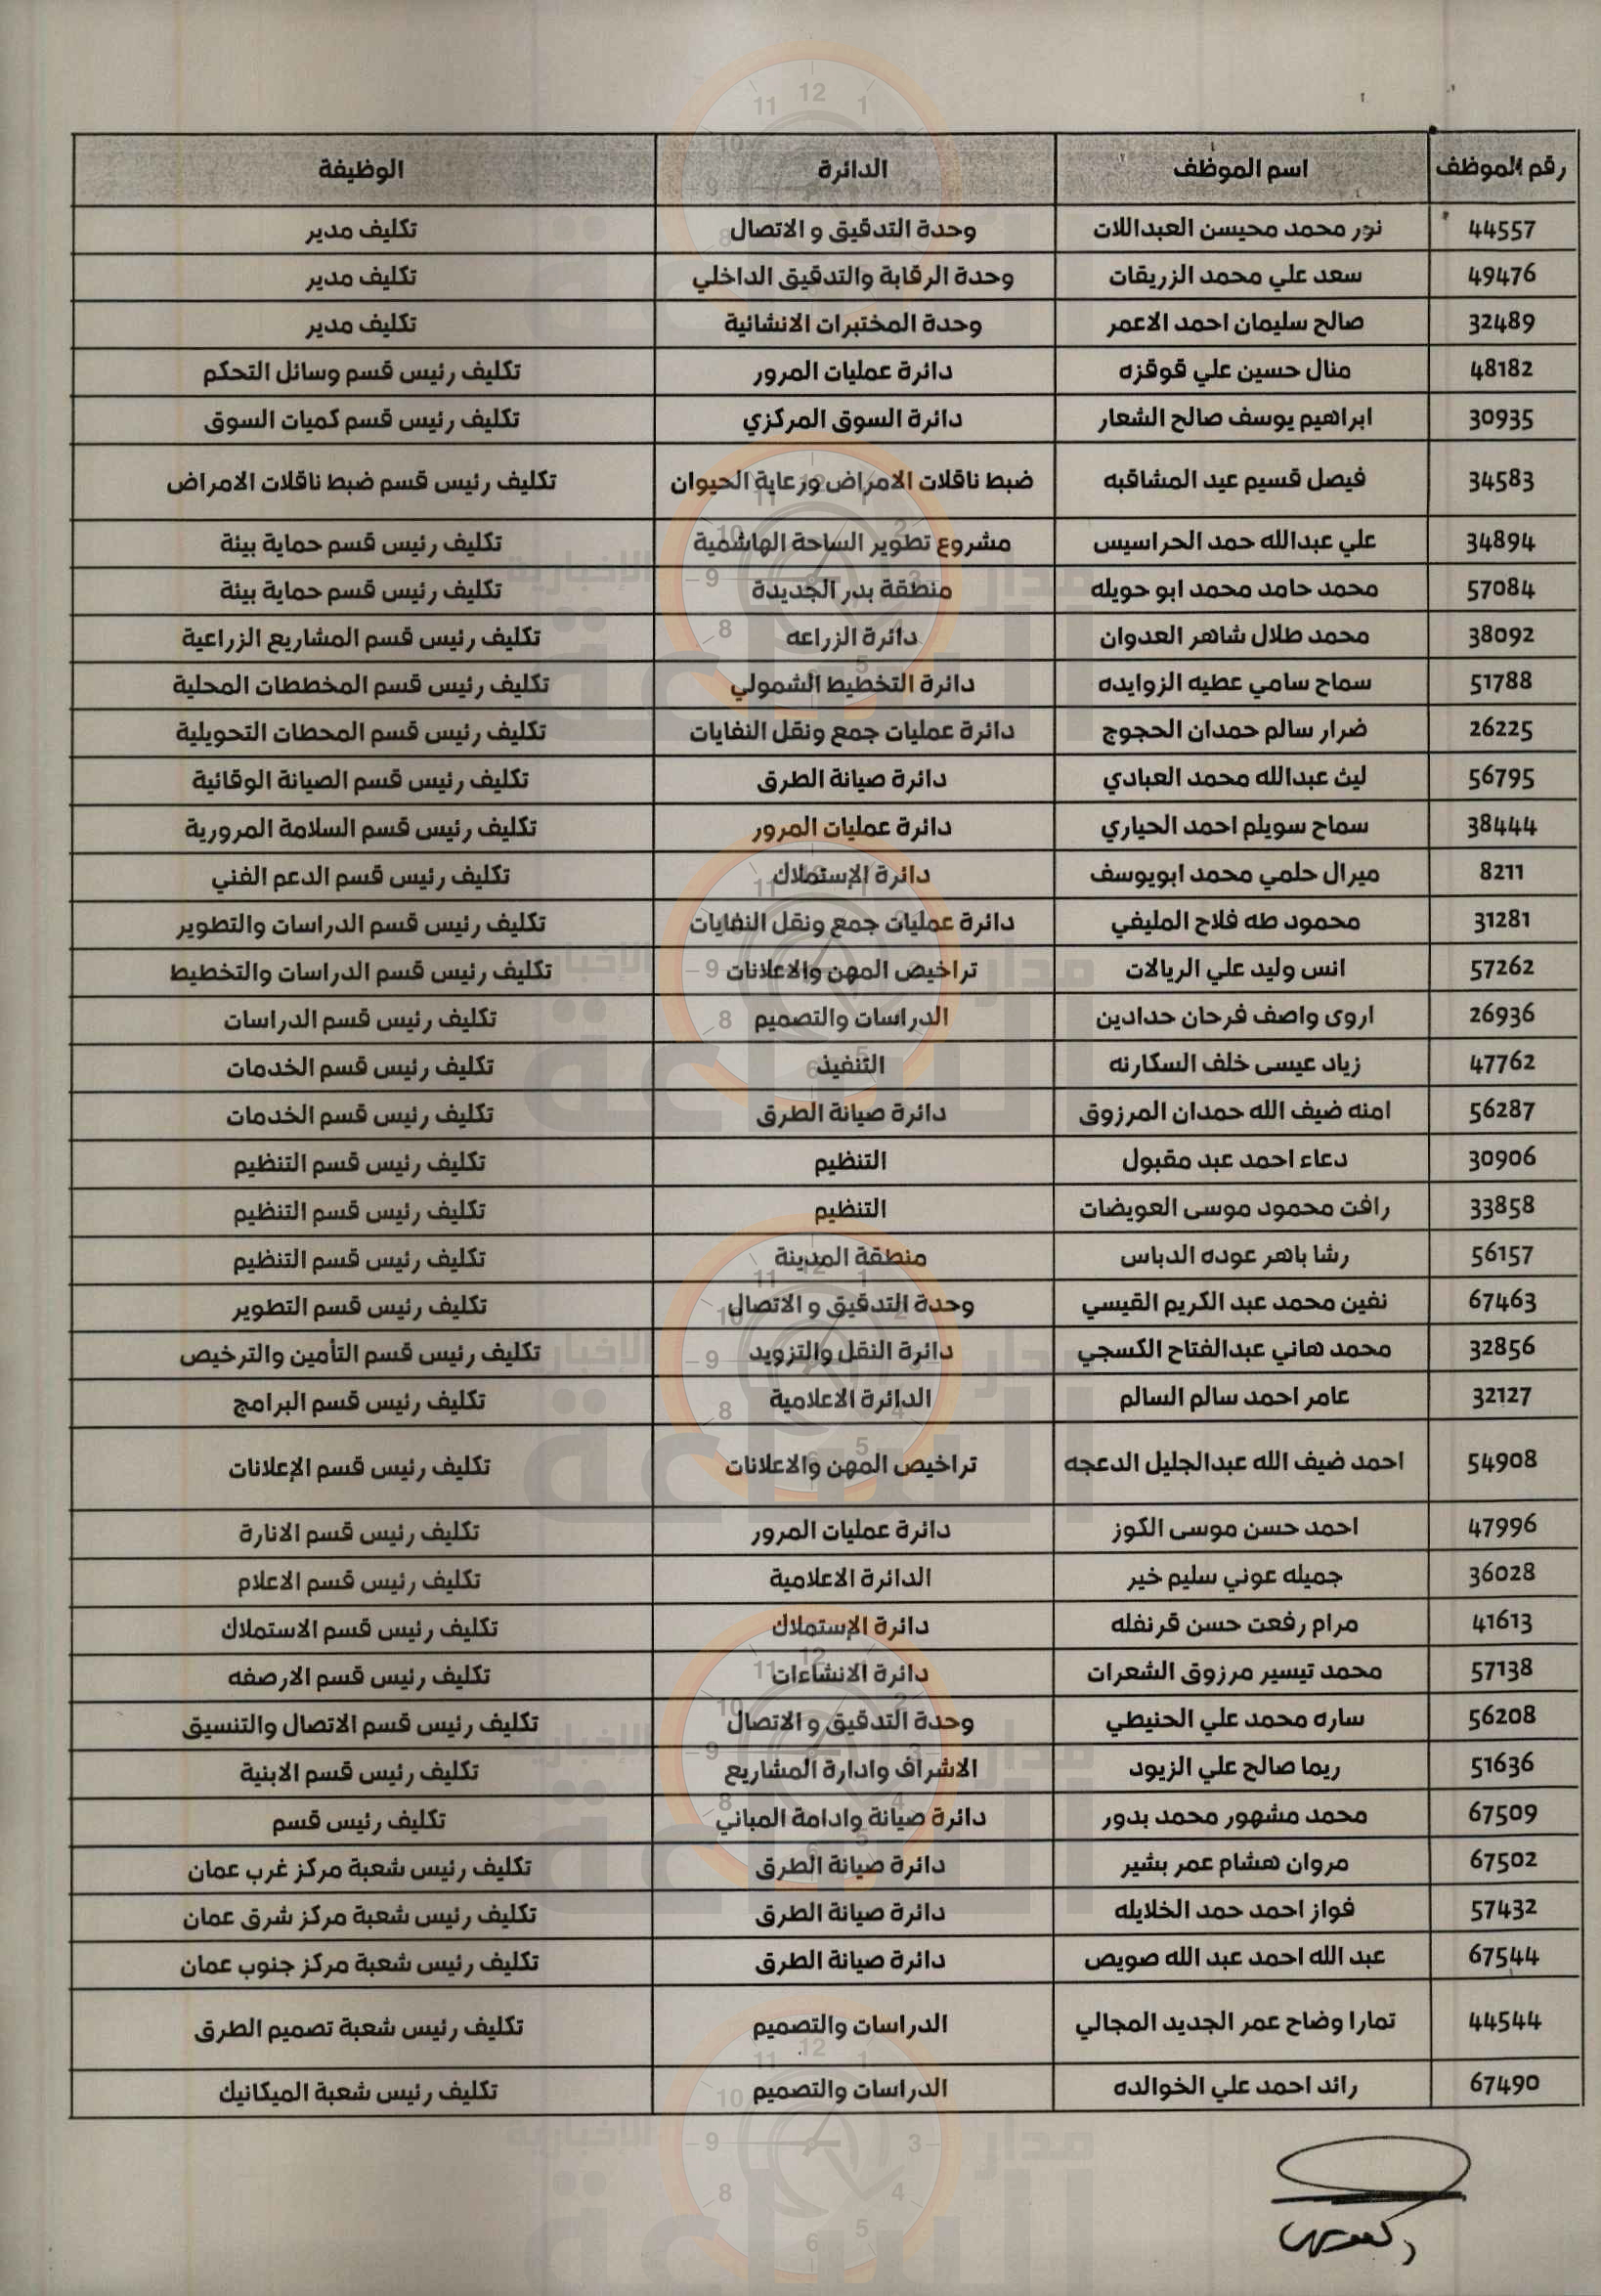 رقم الموظف اسم الموظف الدائرة الوظيفة
44557 نور محمد محيسن العبداللات وحدة التدقيق و الاتصال تكليف مدير
49476 سعد علي محمد الزريقات وحدة الرقابة والتدقيق الداخلي تكليف مدير
32489 صالح سليمان احمد الاعمر وحدة المختبرات الانشائية تكليف مدير
48182 منال حسين علي قوقزه دائرة عمليات المرور تكليف رئيس قسم وسائل التحكم
30935 ابراهيم يوسف صالح الشعار دائرة السوق المركزي تكليف رئيس قسم كميات السوق
34583 فيصل قسيم عيد المشاقبه ضبط ناقلات الامراض ورعاية الحيوان تكليف رئيس قسم ضبط ناقلات الامراض
34894 علي عبدالله حمد الحراسيس مشروع تطوير الساحة الهاشمية تكليف رئيس قسم حماية بيئة
57084 محمد حامد محمد ابو حويله منطقة بدر الجديدة تكليف رئيس قسم حماية بيئة
38092 محمد طلال شاهر العدوان دائرة الزراعه تكليف رئيس قسم المشاريع الزراعية
51788 سماح سامي عطيه الزوايده دائرة التخطيط الشمولي تكليف رئيس قسم المخططات المحلية
26225 ضرار سالم حمدان الحجوج دائرة عمليات جمع ونقل النفايات تكليف رئيس قسم المحطات التحويلية
56795 ليث عبدالله محمد العبادي دائرة صيانة الطرق تكليف رئيس قسم الصيانة الوقائية
38444 سماح سويلم احمد الحياري دائرة عمليات المرور تكليف رئيس قسم السلامة المرورية
8211 ميرال حلمي محمد ابويوسف دائرة الإستملاك تكليف رئيس قسم الدعم الفني
31281 محمود طه فلاح المليفي دائرة عمليات جمع ونقل النفايات تكليف رئيس قسم الدراسات والتطوير
57262 انس وليد علي الريالات تراخيص المهن والاعلانات تكليف رئيس قسم الدراسات والتخطيط
26936 اروى واصف فرحان حدادين الدراسات والتصميم تكليف رئيس قسم الدراسات
47762 زياد عيسى خلف السكارنه التنفيذ تكليف رئيس قسم الخدمات
56287 امنه ضيف الله حمدان المرزوق دائرة صيانة الطرق تكليف رئيس قسم الخدمات
30906 دعاء احمد عبد مقبول التنظيم تكليف رئيس قسم التنظيم
33858 رافت محمود موسى العويضات التنظيم تكليف رئيس قسم التنظيم
56157 رشا باهر عوده الدباس منطقة المدينة تكليف رئيس قسم التنظيم
67463 نفين محمد عبد الكريم القيسي وحدة التدقيق و الاتصال تكليف رئيس قسم التطوير
32856 محمد هاني عبدالفتاح الكسجي دائرة النقل والتزويد تكليف رئيس قسم التأمين والترخيص
32127 عامر احمد سالم السالم الدائرة الاعلامية تكليف رئيس قسم البرامج
54908 احمد ضيف الله عبدالجليل الدعجه تراخيص المهن والاعلانات تكليف رئيس قسم الإعلانات
47996 احمد حسن موسى الكوز دائرة عمليات المرور تكليف رئيس قسم الانارة
36028 جميله عوني سليم خير الدائرة الاعلامية تكليف رئيس قسم الاعلام
41613 مرام رفعت حسن قرنفله دائرة الإستملاك تكليف رئيس قسم الاستملاك
57138 محمد تيسير مرزوق الشعرات دائرة الانشاءات تكليف رئيس قسم الارصفه
56208 ساره محمد علي الحنيطي وحدة التدقيق و الاتصال تكليف رئيس قسم الاتصال والتنسيق
51636 ريما صالح علي الزيود الاشراف وادارة المشاريع تكليف رئيس قسم الابنية
67509 محمد مشهور محمد بدور دائرة صيانة وادامة المباني تكليف رئيس قسم
67502 مروان هشام عمر بشير دائرة صيانة الطرق تكليف رئيس شعبة مركز غرب عمان
57432 فواز احمد حمد الخلايله دائرة صيانة الطرق تكليف رئيس شعبة مركز شرق عمان
67544 عبد الله احمد عبد الله صويص دائرة صيانة الطرق تكليف رئيس شعبة مركز جنوب عمان
44544 تمارا وضاح عمر الجديد المجالي الدراسات والتصميم تكليف رئيس شعبة تصميم الطرق
67490 رائد احمد علي الخوالده الدراسات والتصميم تكليف رئيس شعبة الميكانيك